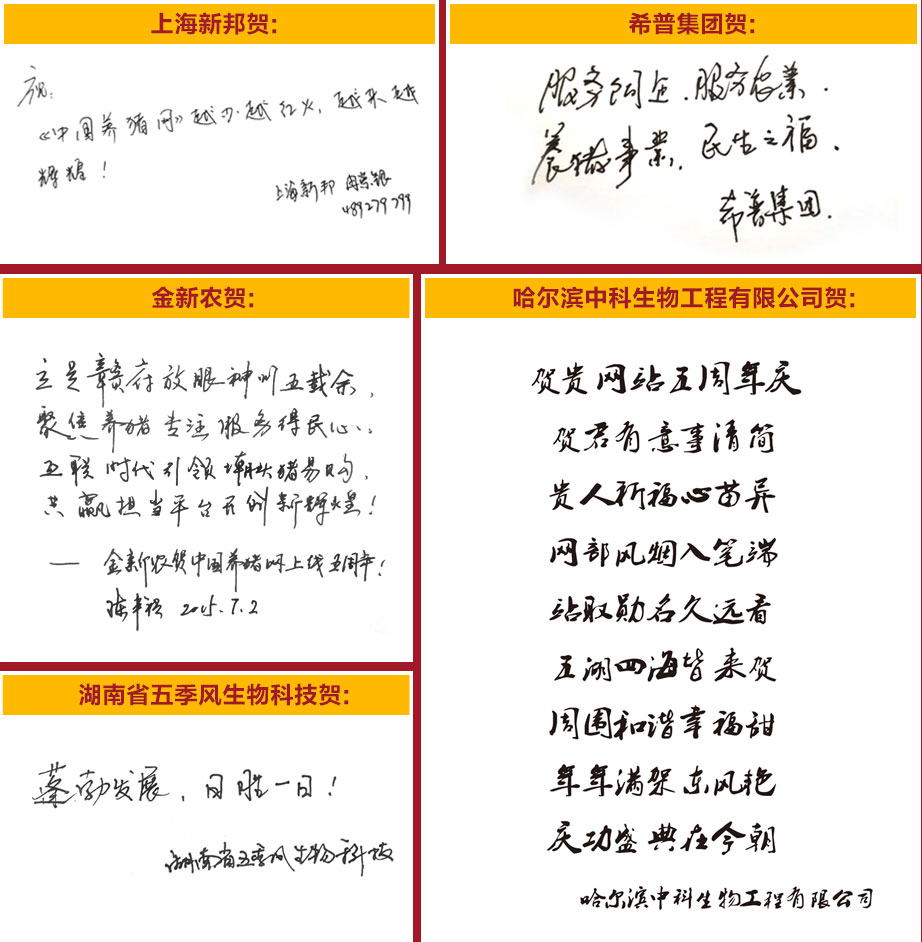 上海新邦贺:
祝:
《中国养猪网》越办越红火，越来越
辉煌！
上海新邦
489279799
希普集团贺:
服务饲企．服务农业．
养猪事业，民生之福．
希普集团．
金新农贺:
立足赣府放眼神州五载余，
聚焦养猪专注服务得民心，
互联时代引领潮头猪易购，
共赢担当平台开创新辉煌！
— 金新农贺中国养猪网上线五周年！
2015.7.2
湖南省五季风生物科技贺:
蓬勃发展，日胜一日！
湖南省五季风生物科技
哈尔滨中科生物工程有限公司贺:
贺贵网站五周年庆
贺君有意事清简
贵人祈福心苗异
网部风烟入笔端
站取勋名久远看
五湖四海皆来贺
周围和谐幸福甜
年年满架东风艳
庆功盛典在今朝
哈尔滨中科生物工程有限公司